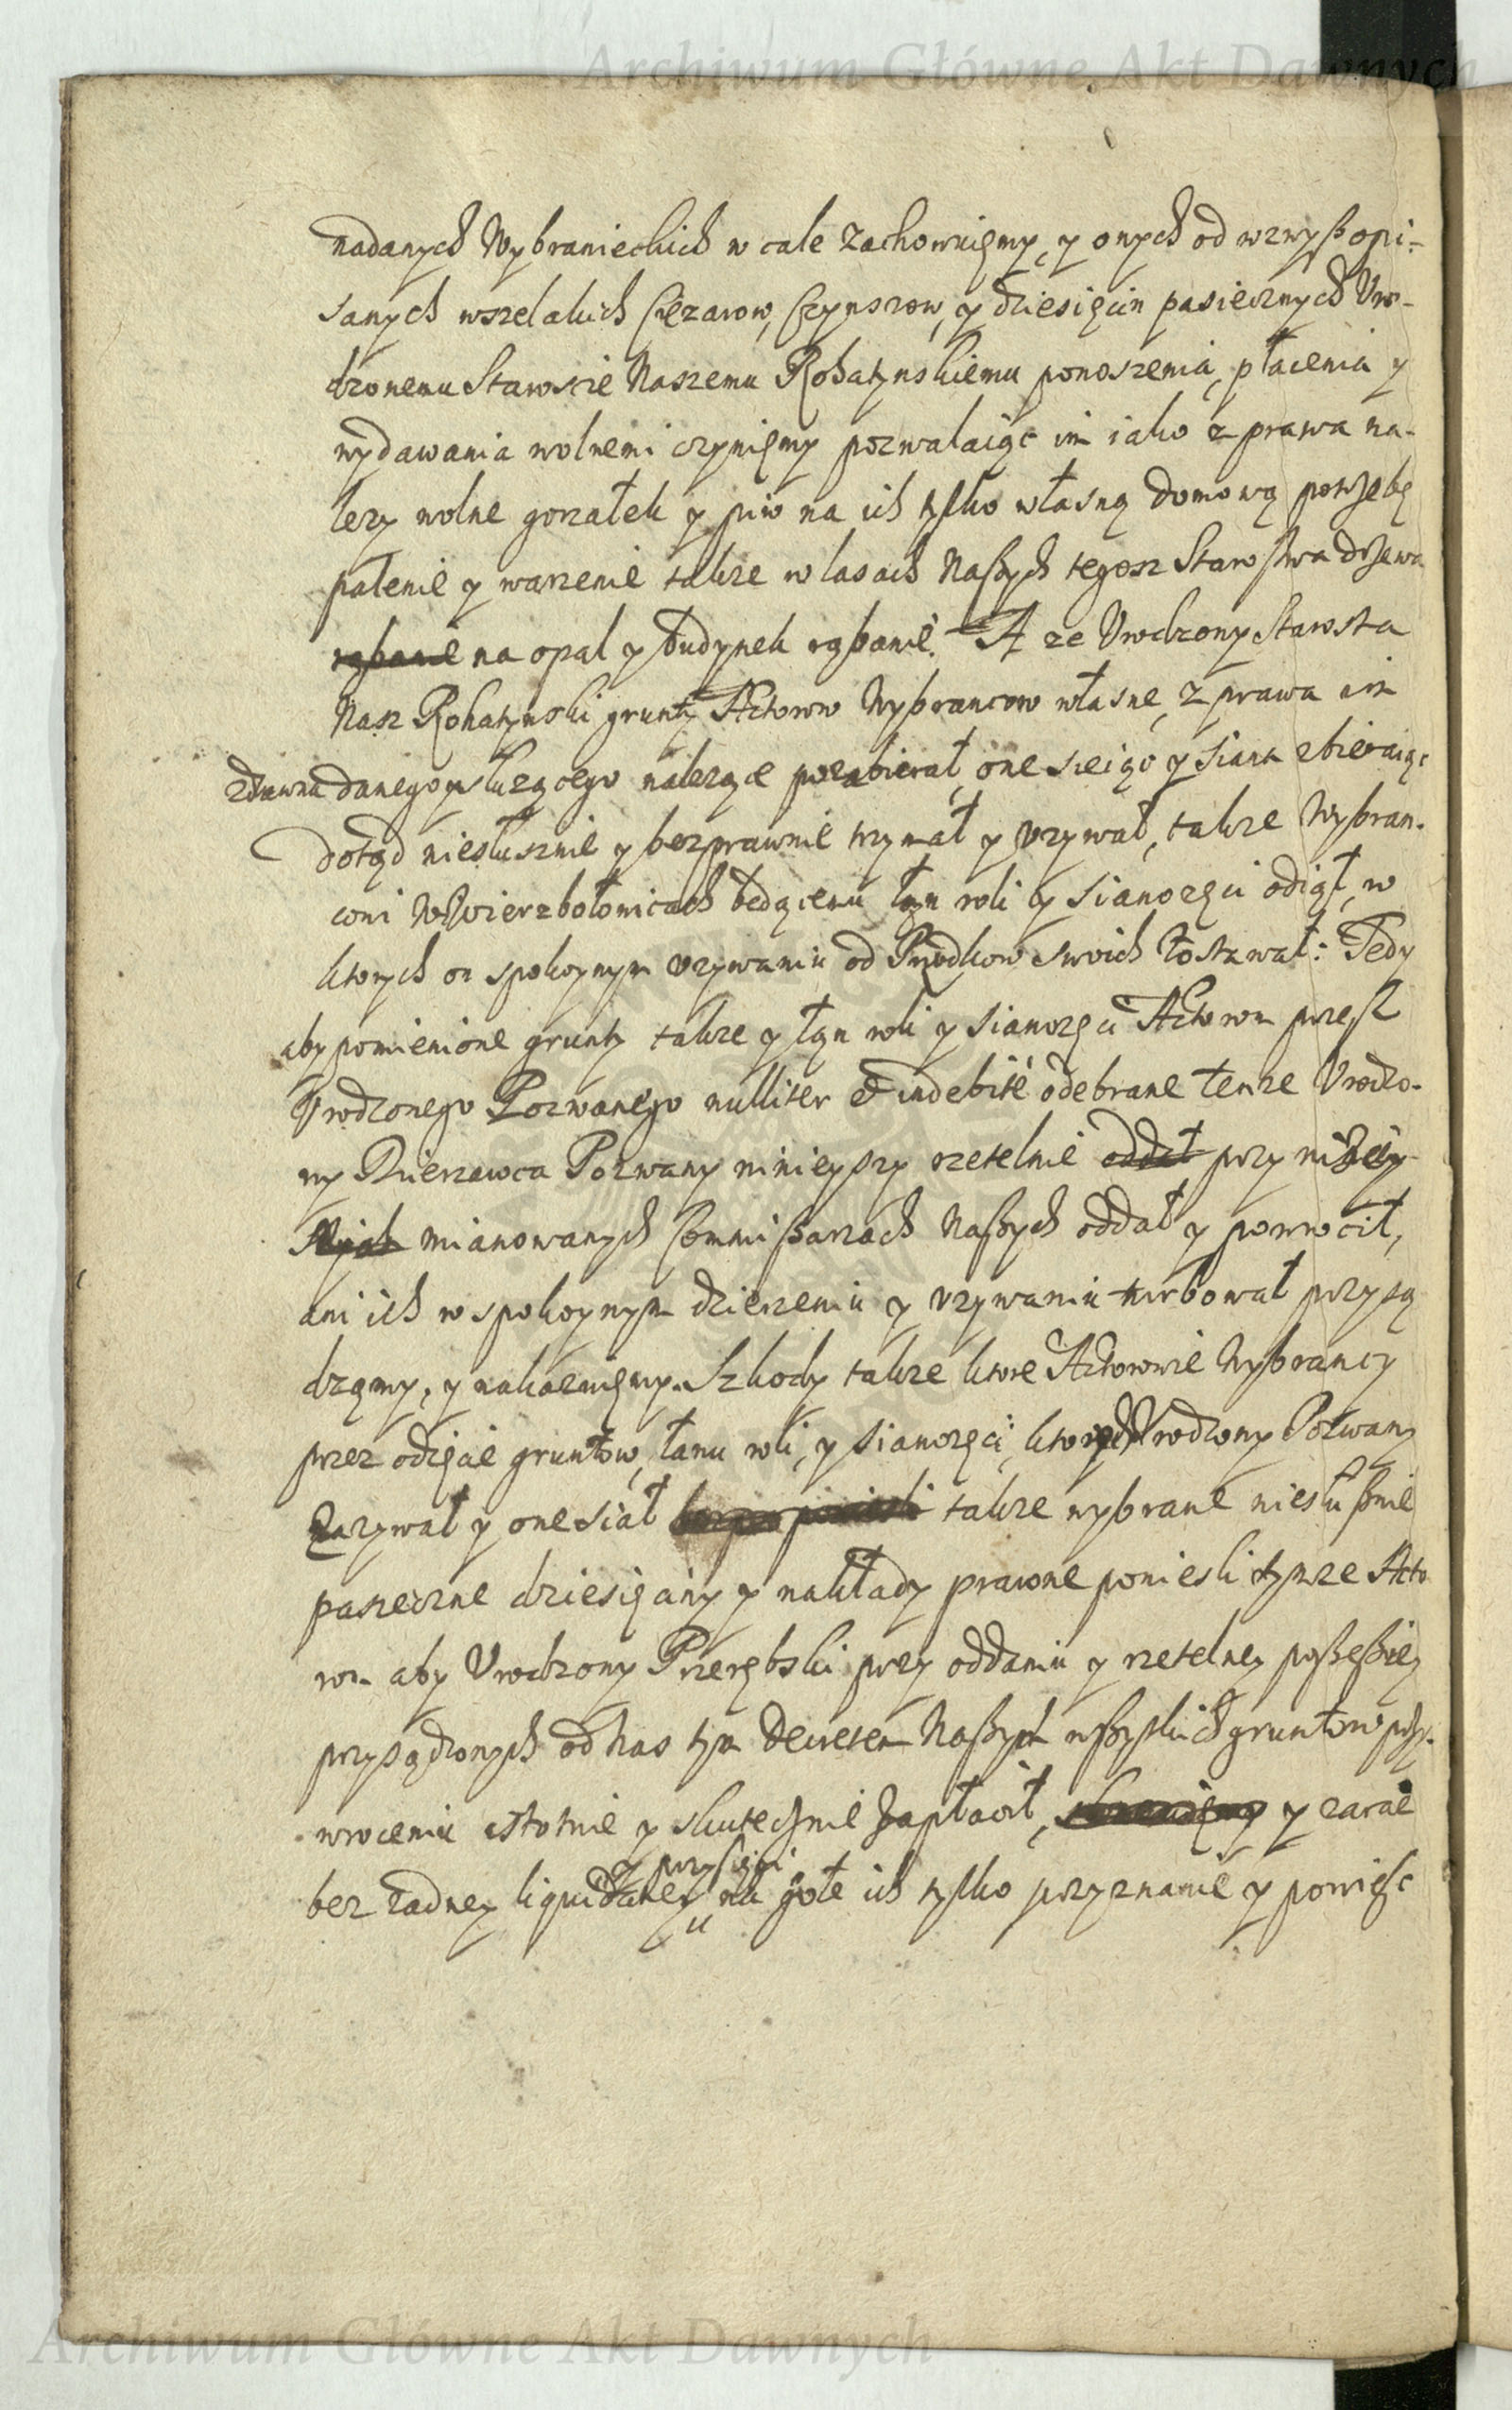 Archiwum Główne Akt Dawnych
nadanych Wybranieckich w cale zachowuięmy, y onych od wzwyß opi-
sanych wszelakich Cięzarow, Czynszow, y dziesięcin pasiecznych Vro-
dzonemu Staroscie Naszemu Rohatynskiemu ponoszenia, płacenia y
wydawania wolnemi czynięmy pozwalaiąc im iako z prawa na-
lezy wolne gorzałek y piw na ich tylko własną domową potrzebę
palenie y warzenie takze w lasach Naßych tegosz Starostwa drzewa
rąbanie na opał y budynek rąbanie. A ze Vrodzony Starosta
Nasz Rohatynski grunty Actorow Wybrancow własne, z prawa im
zdawna danego y słuzącego nalezące pozabierał, one sieiąc y siana zbieraiąc
dotąd niesłusznie y bezprawnie trzymał y vzywał, takze Wybran-
cowi w Wierzbołowicach będącemu łan roli y sianozęci odiął, w
ktorych on spokoynym vzywaniu od Przodkow swoich zostawał: Tedy
aby pomienione grunty takze y łan roli y sianozęci Actorom przesz
Vrodzonego Pozwanego nulliter et indebite odebrane tenze Vrodzo-
ny Dzierzawca Pozwany ninieyszy rzetelnie oddał przy nizey
mianowanych Commißarzach Naßych oddał y powrocił,
ani ich w spokoynym dzierzeniu y vzywaniu turbował przysą
dzęmy, y nakazuięmy. Szkody takze ktore Actorowie Wybrancy
przez odięcie gruntow, łanu roli, y sianozęci, ktorych Vrodzony Pozwany
Zazywał y one siał takze wybrane niesłußnie
paszeczne dziesięciny y nakłady prawne poniesli tymze Acto
rom aby Vrodzony Przerębski przy oddaniu y rzetelney poßeßiey
przysądzonych od nas tym Decretem Naßym wßystkich gruntow przy-
wroceniu istotnie y skutecznie zapłacił, y zaraz
z przysięgi
bez zadney liquidaney na gołe ich tylko przyznanie y powieść
Archiwum Główne Akt Dawnych